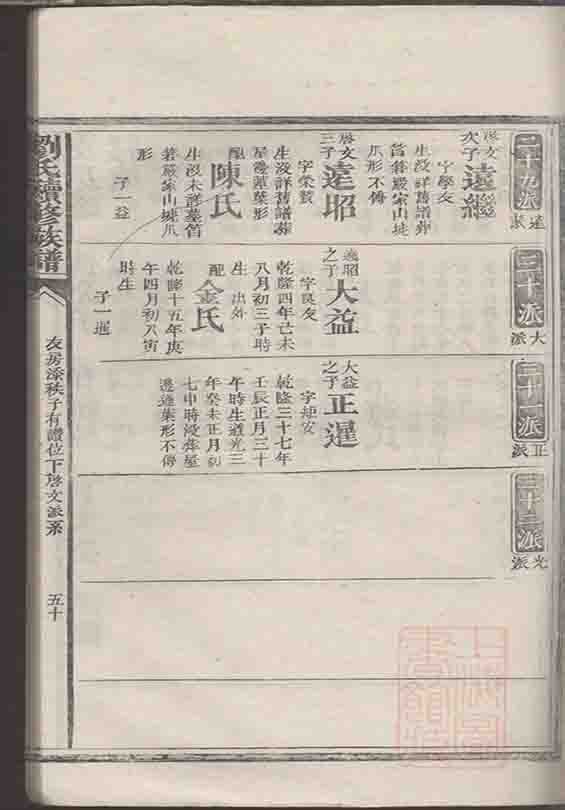 二十九派
遠派
啓文
次子
遠繼
字學友
生没詳舊譜葬
筲箕嚴家山
瓜形不傳
啓文
三子
遠昭
字榮贊
生没詳舊譜葬
屋邊蓮葉形
配
陳氏
生没未詳墓筲
箕嚴家山
形
子一益
三十派
大派
遠昭
之子
大益
字良友
乾隆四年己未
八月初三子時
生 出外
配
金氏
乾隆十五年庚
午四月初八寅
時生
子一暹
三十一派
正派
大益
之子
正暹
乾隆三十七年
壬辰正月三十
午時生道光三
年癸未正月初
七申時没葬屋
邊蓮葉形不傳
三十二派
光派
劉氏續修族譜
友房添秩子有讚位下啓文派系
五十
上海圖書館藏